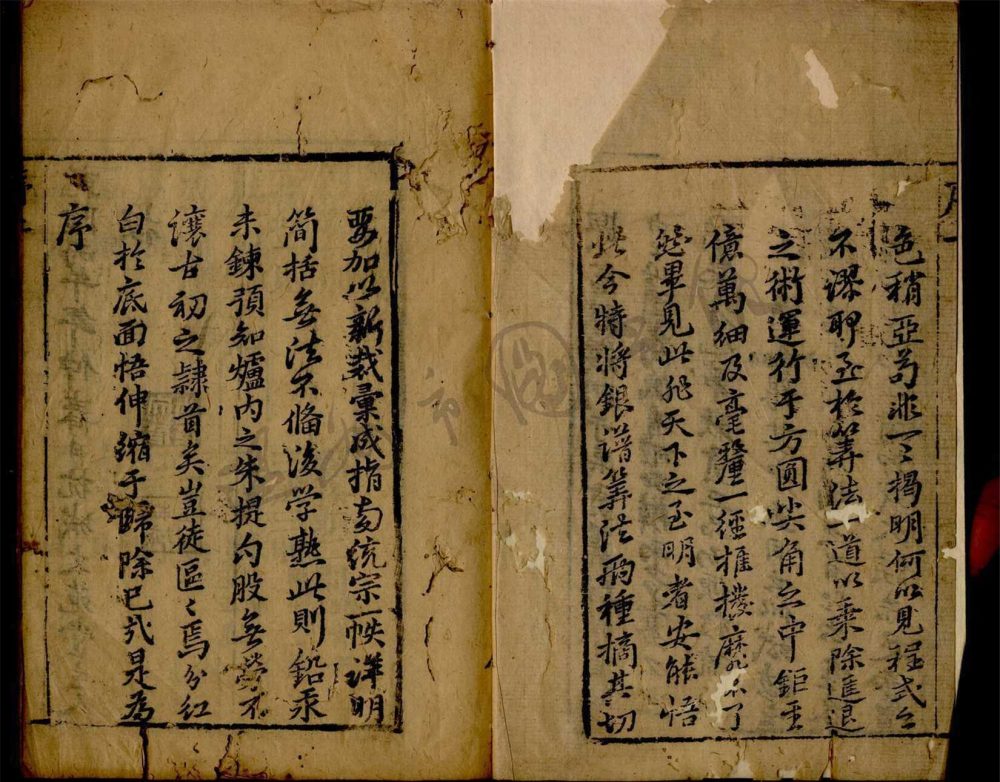 色稍亞苟非一〻揭明何以見程式之
不謬耶至於筭法一道以乗除進退
之術運行于方圓尖角之中鉅至
億萬細及毫釐一經推搜靡不了
然畢見此非天下之至明者安能悟
此今特將銀譜筭法两種摘其切
要加以新裁彙成指南統宗一帙詳明
簡括無法不備後学熟此則鉛汞
未鍊預知爐内之朱提勾股無勞不
讓古初之隷首矣豈徒區〻焉分紅
白於底面悟伸縮于歸除已哉是為
序